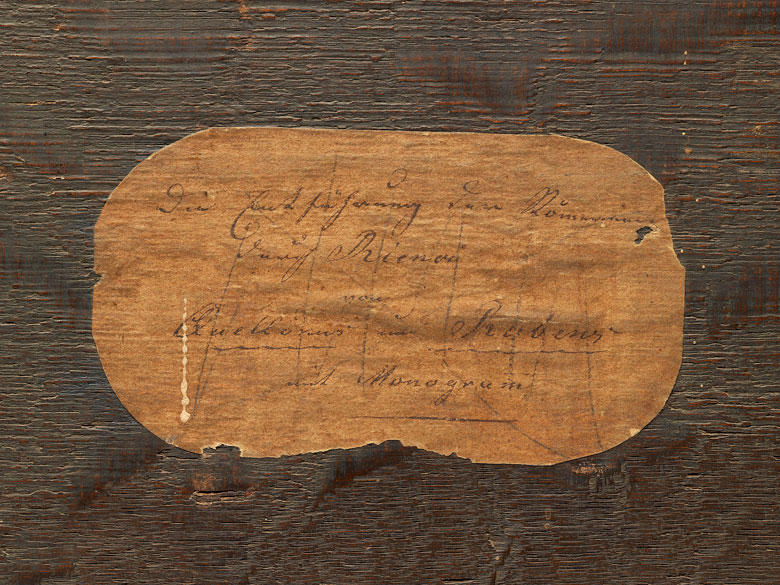 Die Entführung der Römerinnen
durch Rienzi
von
Quellinus und Rubens
mit Monogram